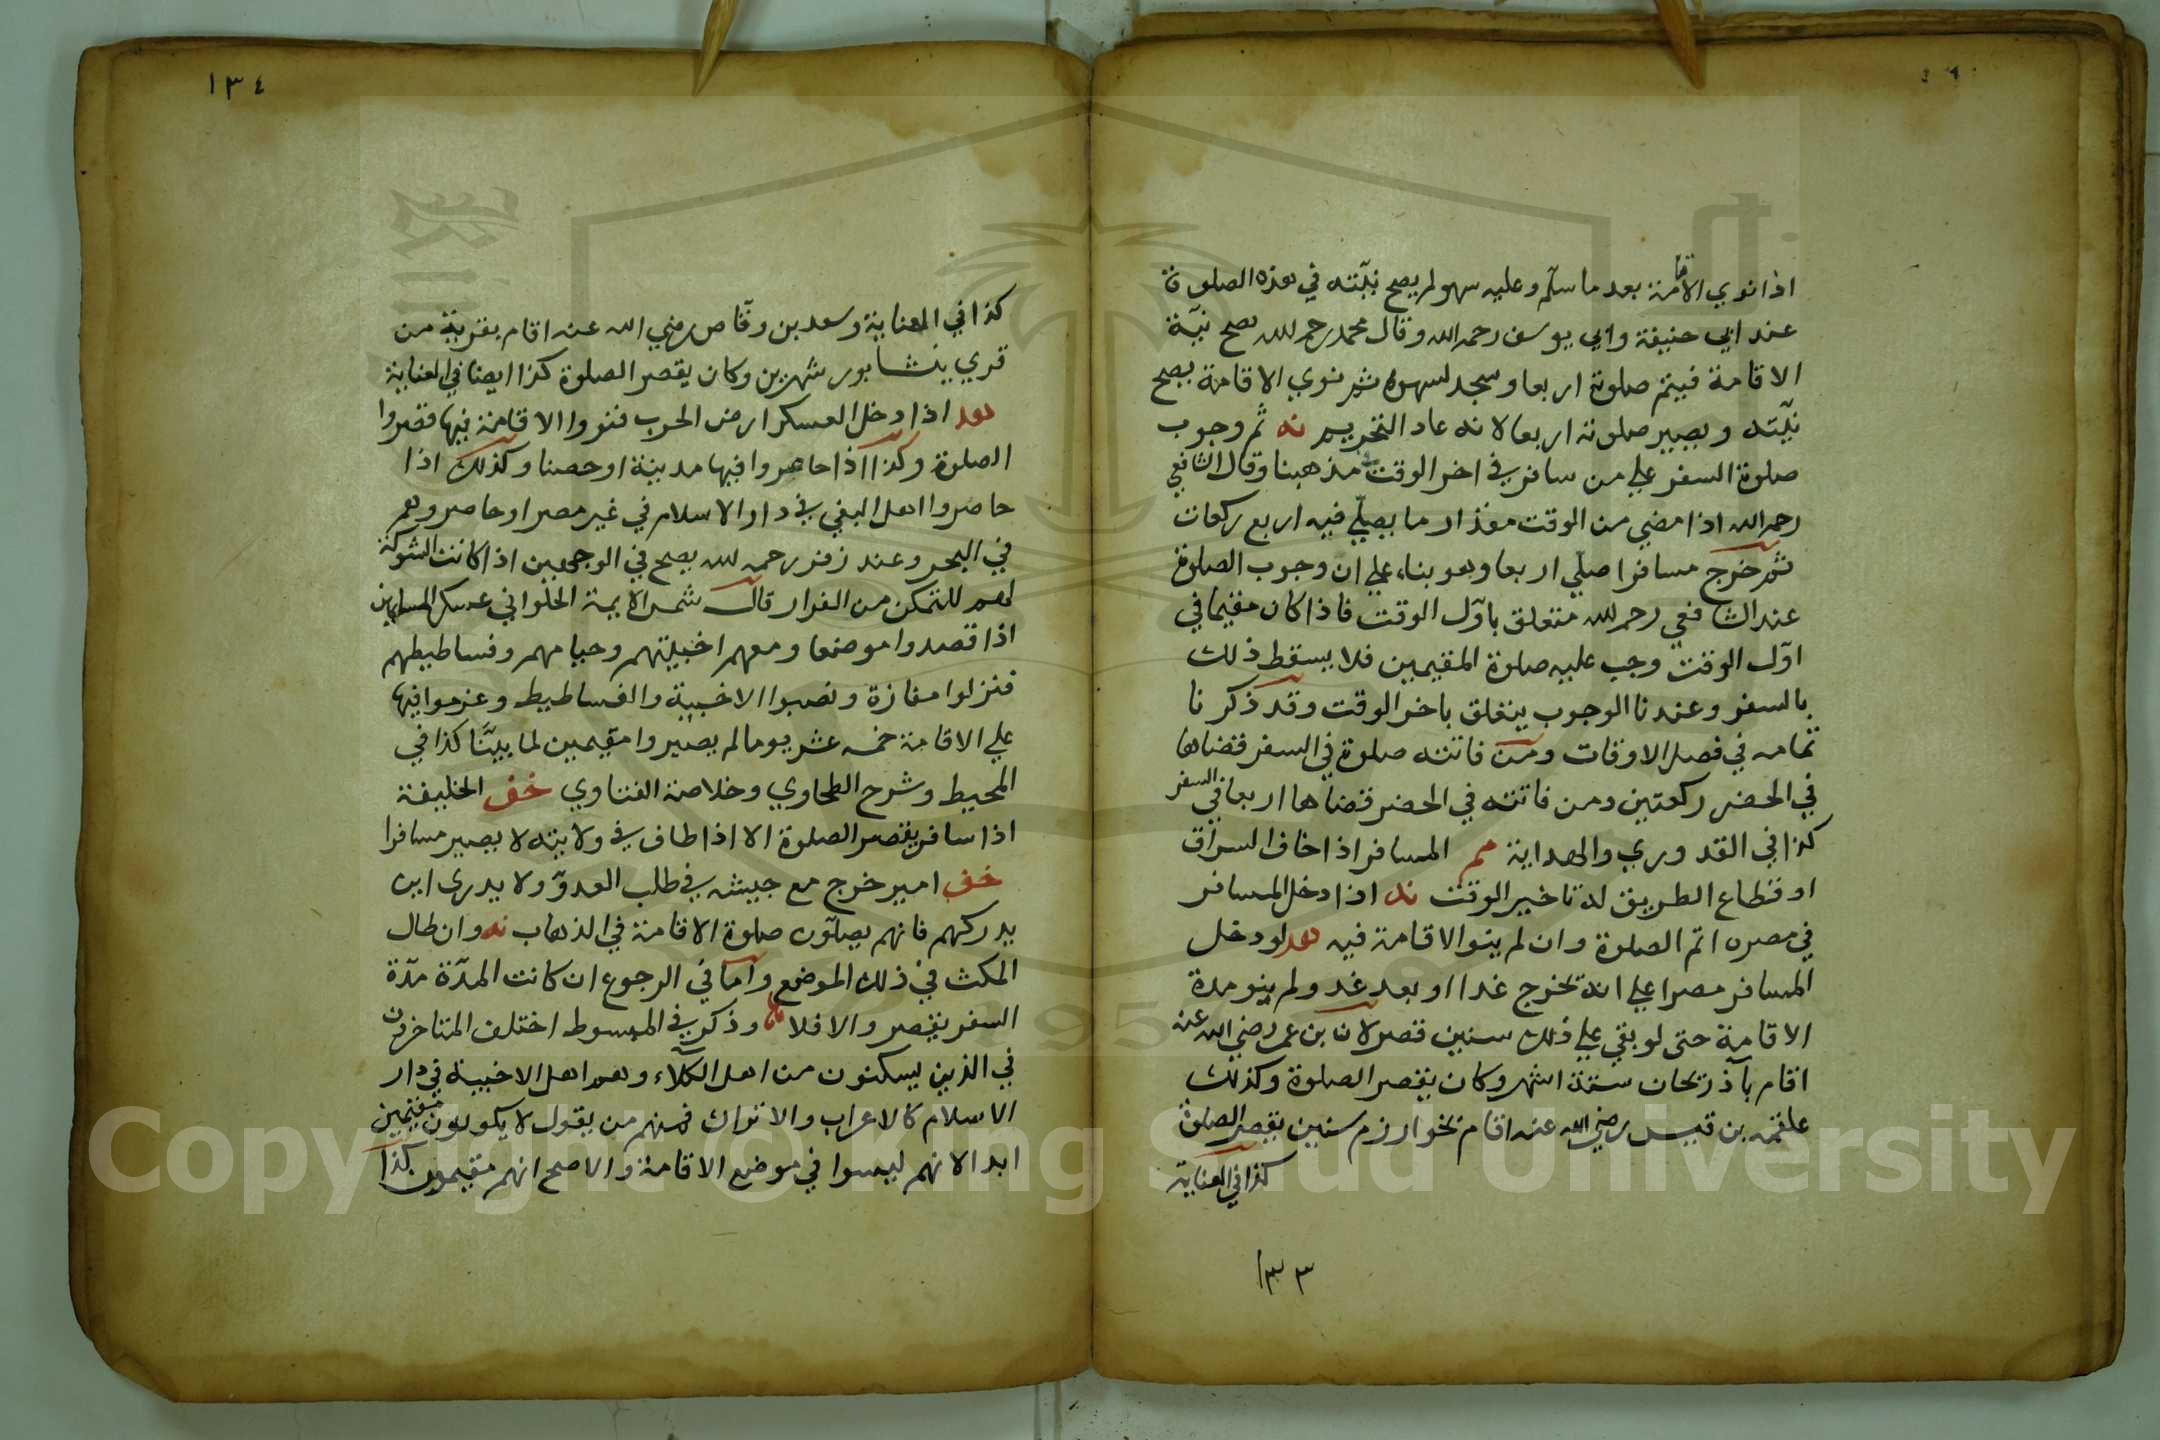 اذا نوي الاقامة بعد ما سلّم وعليه سهو لم يصح نيّته في هذه الصلوة
عند ابي حنيفة وابي يوسف رحمه الله وقال محمد رحمه الله يصح نيّة
الاقامة فيتم صلوته اربعا وسجد لسهوه ثم نوي الاقامة يصح
نيّته ويصير صلوته اربعا لانه عاد التحريم نه ثم وجوب
صلوة السفر علي من سافر في اخر الوقت مذهبنا وقال الشافعي
رحمه الله اذا مضي من الوقت مقدار ما يصلّي فيه اربع ركعات
ثم خرج مسافرا صلّي اربعا وهو بناء علي ان وجوب الصلوة
عند الشافعي رحمه الله متعلق باوّل الوقت فاذا كان مقيما في
اوّل الوقت وجب عليه صلوة المقيمين فلا يسقط ذلك
بالسفر وعندنا الوجوب يتعلق باخر الوقت وقد ذكرنا
تمامه في فصل الاوقات ومن فاتته صلوة في السفر قضاها
في الحضر ركعتين ومن فاتته في الحضر قضاها اربعا في السفر
كذا في القدوري والهداية مم المسافر اذا خاف السراق
او قطاع الطريق له تاخير الوقت نه اذا دخل المسافر
في مصره اتم الصلوة وان لم ينو الاقامة فيه هد لو دخل
المسافر مصرا علي انه يخرج غدا او بعد غد ولم ينو مدة
الاقامة حتى لو بقي علي ذلك سنين قصر لان بن عمر رضي الله عنه
اقام بآذربحان ستة اشهر وكان يقصر الصلوة وكذلك
علقمه بن قيس رضي الله عنه اقام بخوارزم سنين يقصر الصلوة
كذا في العناية
١٣٣
١٣٤
كذا في العناية وسعد بن وقّاص رضي الله عنه اقام بقرية من
قري ينشابور شهرين وكان يقصر الصلوة كذا ايضا في العناية
هد اذا دخل العسكر ارض الحرب فنووا الاقامة فيها قصروا
الصلوة وكذا اذا حاصروا فيها مدينة او حصنا وكذلك اذا
حاصروا اهل البغي في دار الاسلام في غير مصر او حاصروهم
في البحر وعند زفر رحمه الله يصح في الوجهين اذا كانت الشوكة
لهم للتمكن من الفرار قال شمس الايمة الحلواني عسكر المسلمين
اذا قصدوا موضعا ومعهم اخبيتهم وخيامهم وفساطيطهم
فنزلوا مفازة ونصبوا الاخبية والفساطيط وعزموا فيها
علي الاقامة خمسه عشر يوما لم يصيروا مقيمين لما بيّنّا كذا في
المحيط وشرح الطحاوي وخلاصة الفتاوي خف الخليفة
اذا سافر يقصر الصلوة الا اذا طاف في ولايته لا يصير مسافرا
خف امير خرج مع جيشه في طلب العدوّ ولا يدرى اين
يدركهم فانهم يصلّون صلوة الاقامة في الذهاب نه وان طال
المكث في ذلك الموضع واما في الرجوع ان كانت المدّة مدّة
السفر يقصر والا فلا وذكر في المبسوط اختلف المتاخرون
في الذين يسكنون من اهل الكلاء وهم اهل الاخبية في دار
الاسلام كالاعراب والاتراك فمنهم من يقول لا يكونون مقيمين
ابدا لانهم ليسوا في موضع الاقامة والاصح انهم مقيمون كذا
Copyright © King Saud University